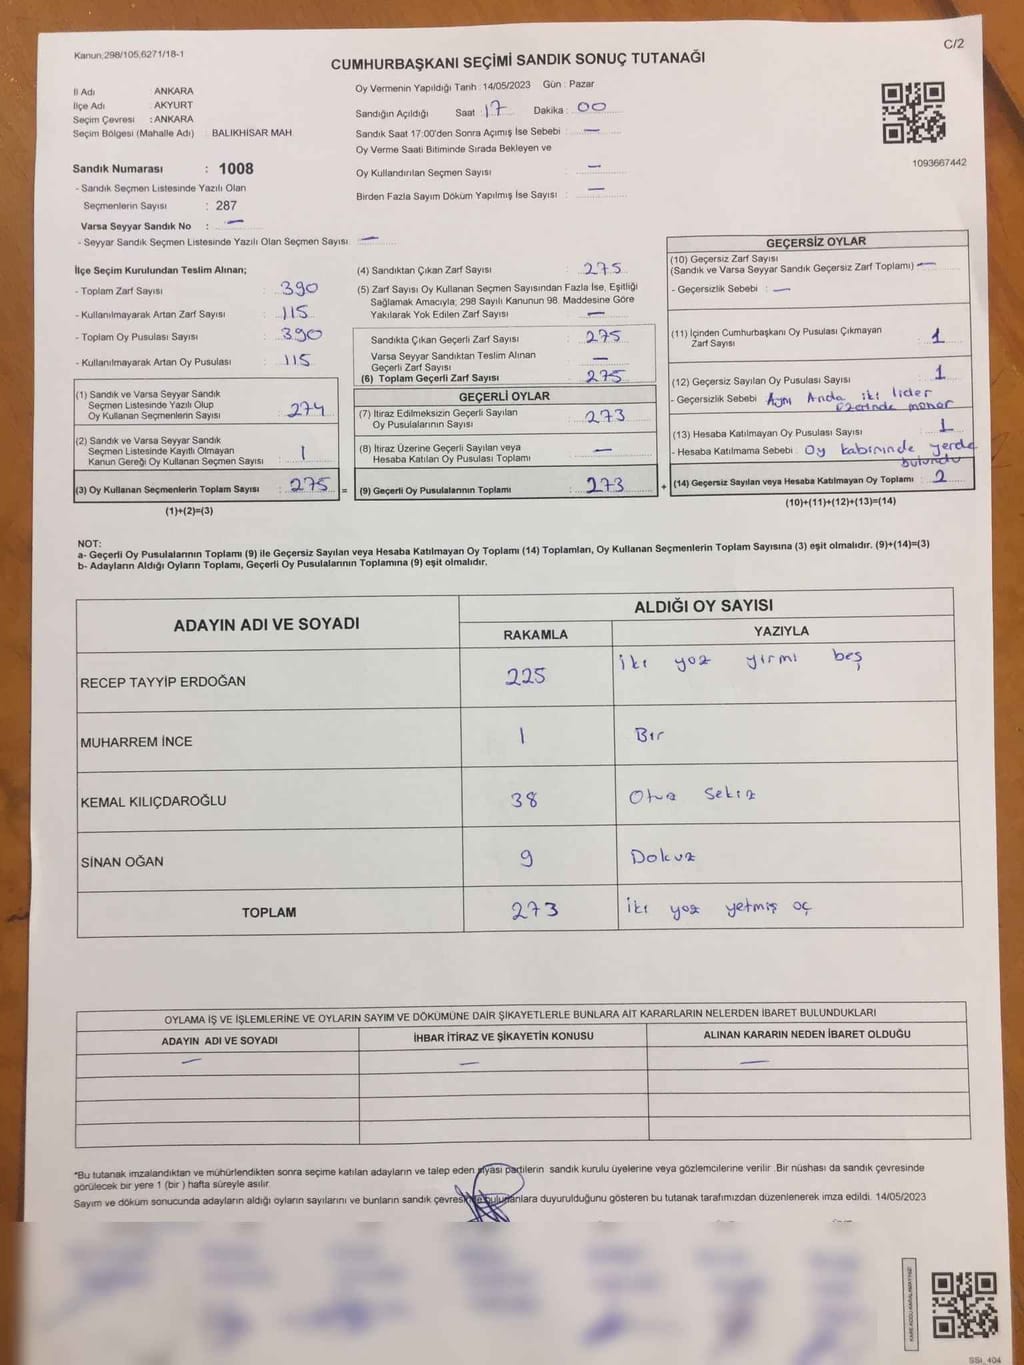 Kanun;298/105,6271/18-1
C/2
CUMHURBAŞKANI SEÇİMİ SANDIK SONUÇ TUTANAĞI
İl Adı ANKARA
İlçe Adı : AKYURT
Seçim Çevresi : ANKARA
Seçim Bölgesi (Mahalle Adı) : BALIKHİSAR MAH.
Oy Vermenin Yapıldığı Tarih : 14/05/2023 Gün : Pazar
Sandığın Açıldığı Saat : 17 Dakika : 00
Sandık Saat 17:00'den Sonra Açımış İse Sebebi : —
Oy Verme Saati Bitiminde Sırada Bekleyen ve
Oy Kullandırılan Seçmen Sayısı : —
Birden Fazla Sayım Döküm Yapılmış İse Sayısı : —
1093667442
Sandık Numarası : 1008
- Sandık Seçmen Listesinde Yazılı Olan
Seçmenlerin Sayısı : 287
Varsa Seyyar Sandık No : —
- Seyyar Sandık Seçmen Listesinde Yazılı Olan Seçmen Sayısı : —
İlçe Seçim Kurulundan Teslim Alınan;
- Toplam Zarf Sayısı : 390
- Kullanılmayarak Artan Zarf Sayısı : 115
- Toplam Oy Pusulası Sayısı : 390
- Kullanılmayarak Artan Oy Pusulası : 115
(1) Sandık ve Varsa Seyyar Sandık
Seçmen Listesinde Yazılı Olup
Oy Kullanan Seçmenlerin Sayısı : 274
(2) Sandık ve Varsa Seyyar Sandık
Seçmen Listesinde Kayıtlı Olmayan
Kanun Gereği Oy Kullanan Seçmen Sayısı : 1
(3) Oy Kullanan Seçmenlerin Toplam Sayısı : 275 =
(1)+(2)=(3)
(4) Sandıktan Çıkan Zarf Sayısı : 275
(5) Zarf Sayısı Oy Kullanan Seçmen Sayısından Fazla İse, Eşitliği
Sağlamak Amacıyla; 298 Sayılı Kanunun 98. Maddesine Göre
Yakılarak Yok Edilen Zarf Sayısı : —
Sandıkta Çıkan Geçerli Zarf Sayısı : 275
Varsa Seyyar Sandıktan Teslim Alınan
Geçerli Zarf Sayısı : —
(6) Toplam Geçerli Zarf Sayısı : 275
GEÇERLİ OYLAR
(7) İtiraz Edilmeksizin Geçerli Sayılan
Oy Pusulalarının Sayısı : 273
(8) İtiraz Üzerine Geçerli Sayılan veya
Hesaba Katılan Oy Pusulası Toplamı : —
(9) Geçerli Oy Pusulalarının Toplamı : 273 +
GEÇERSİZ OYLAR
(10) Geçersiz Zarf Sayısı
(Sandık ve Varsa Seyyar Sandık Geçersiz Zarf Toplamı) : —
- Geçersizlik Sebebi : —
(11) İçinden Cumhurbaşkanı Oy Pusulası Çıkmayan
Zarf Sayısı : 1
(12) Geçersiz Sayılan Oy Pusulası Sayısı : 1
- Geçersizlik Sebebi : Aynı Anda iki lider
üzerinde mühür
(13) Hesaba Katılmayan Oy Pusulası Sayısı : 1
- Hesaba Katılmama Sebebi : Oy kabininde yerde
bulundu
(14) Geçersiz Sayılan veya Hesaba Katılmayan Oy Toplamı : 2
(10)+(11)+(12)+(13)=(14)
NOT:
a- Geçerli Oy Pusulalarının Toplamı (9) ile Geçersiz Sayılan veya Hesaba Katılmayan Oy Toplamı (14) Toplamları, Oy Kullanan Seçmenlerin Toplam Sayısına (3) eşit olmalıdır. (9)+(14)=(3)
b- Adayların Aldığı Oyların Toplamı, Geçerli Oy Pusulalarının Toplamına (9) eşit olmalıdır.
ADAYIN ADI VE SOYADI
ALDIĞI OY SAYISI
RAKAMLA YAZIYLA
RECEP TAYYİP ERDOĞAN 225 iki yüz yirmi beş
MUHARREM İNCE 1 Bir
KEMAL KILIÇDAROĞLU 38 Otuz Sekiz
SİNAN OĞAN 9 Dokuz
TOPLAM 273 iki yüz yetmiş üç
OYLAMA İŞ VE İŞLEMLERİNE VE OYLARIN SAYIM VE DÖKÜMÜNE DAİR ŞİKAYETLERLE BUNLARA AİT KARARLARIN NELERDEN İBARET BULUNDUKLARI
ADAYIN ADI VE SOYADI İHBAR İTİRAZ VE ŞİKAYETİN KONUSU ALINAN KARARIN NEDEN İBARET OLDUĞU
— — —
*Bu tutanak imzalandıktan ve mühürlendikten sonra seçime katılan adayların ve talep eden siyasi partilerin sandık kurulu üyelerine veya gözlemcilerine verilir .Bir nüshası da sandık çevresinde
görülecek bir yere 1 (bir ) hafta süreyle asılır.
Sayım ve döküm sonucunda adayların aldığı oyların sayılarını ve bunların sandık çevresinde bulunanlara duyurulduğunu gösteren bu tutanak tarafımızdan düzenlenerek imza edildi. 14/05/2023
SSt_404